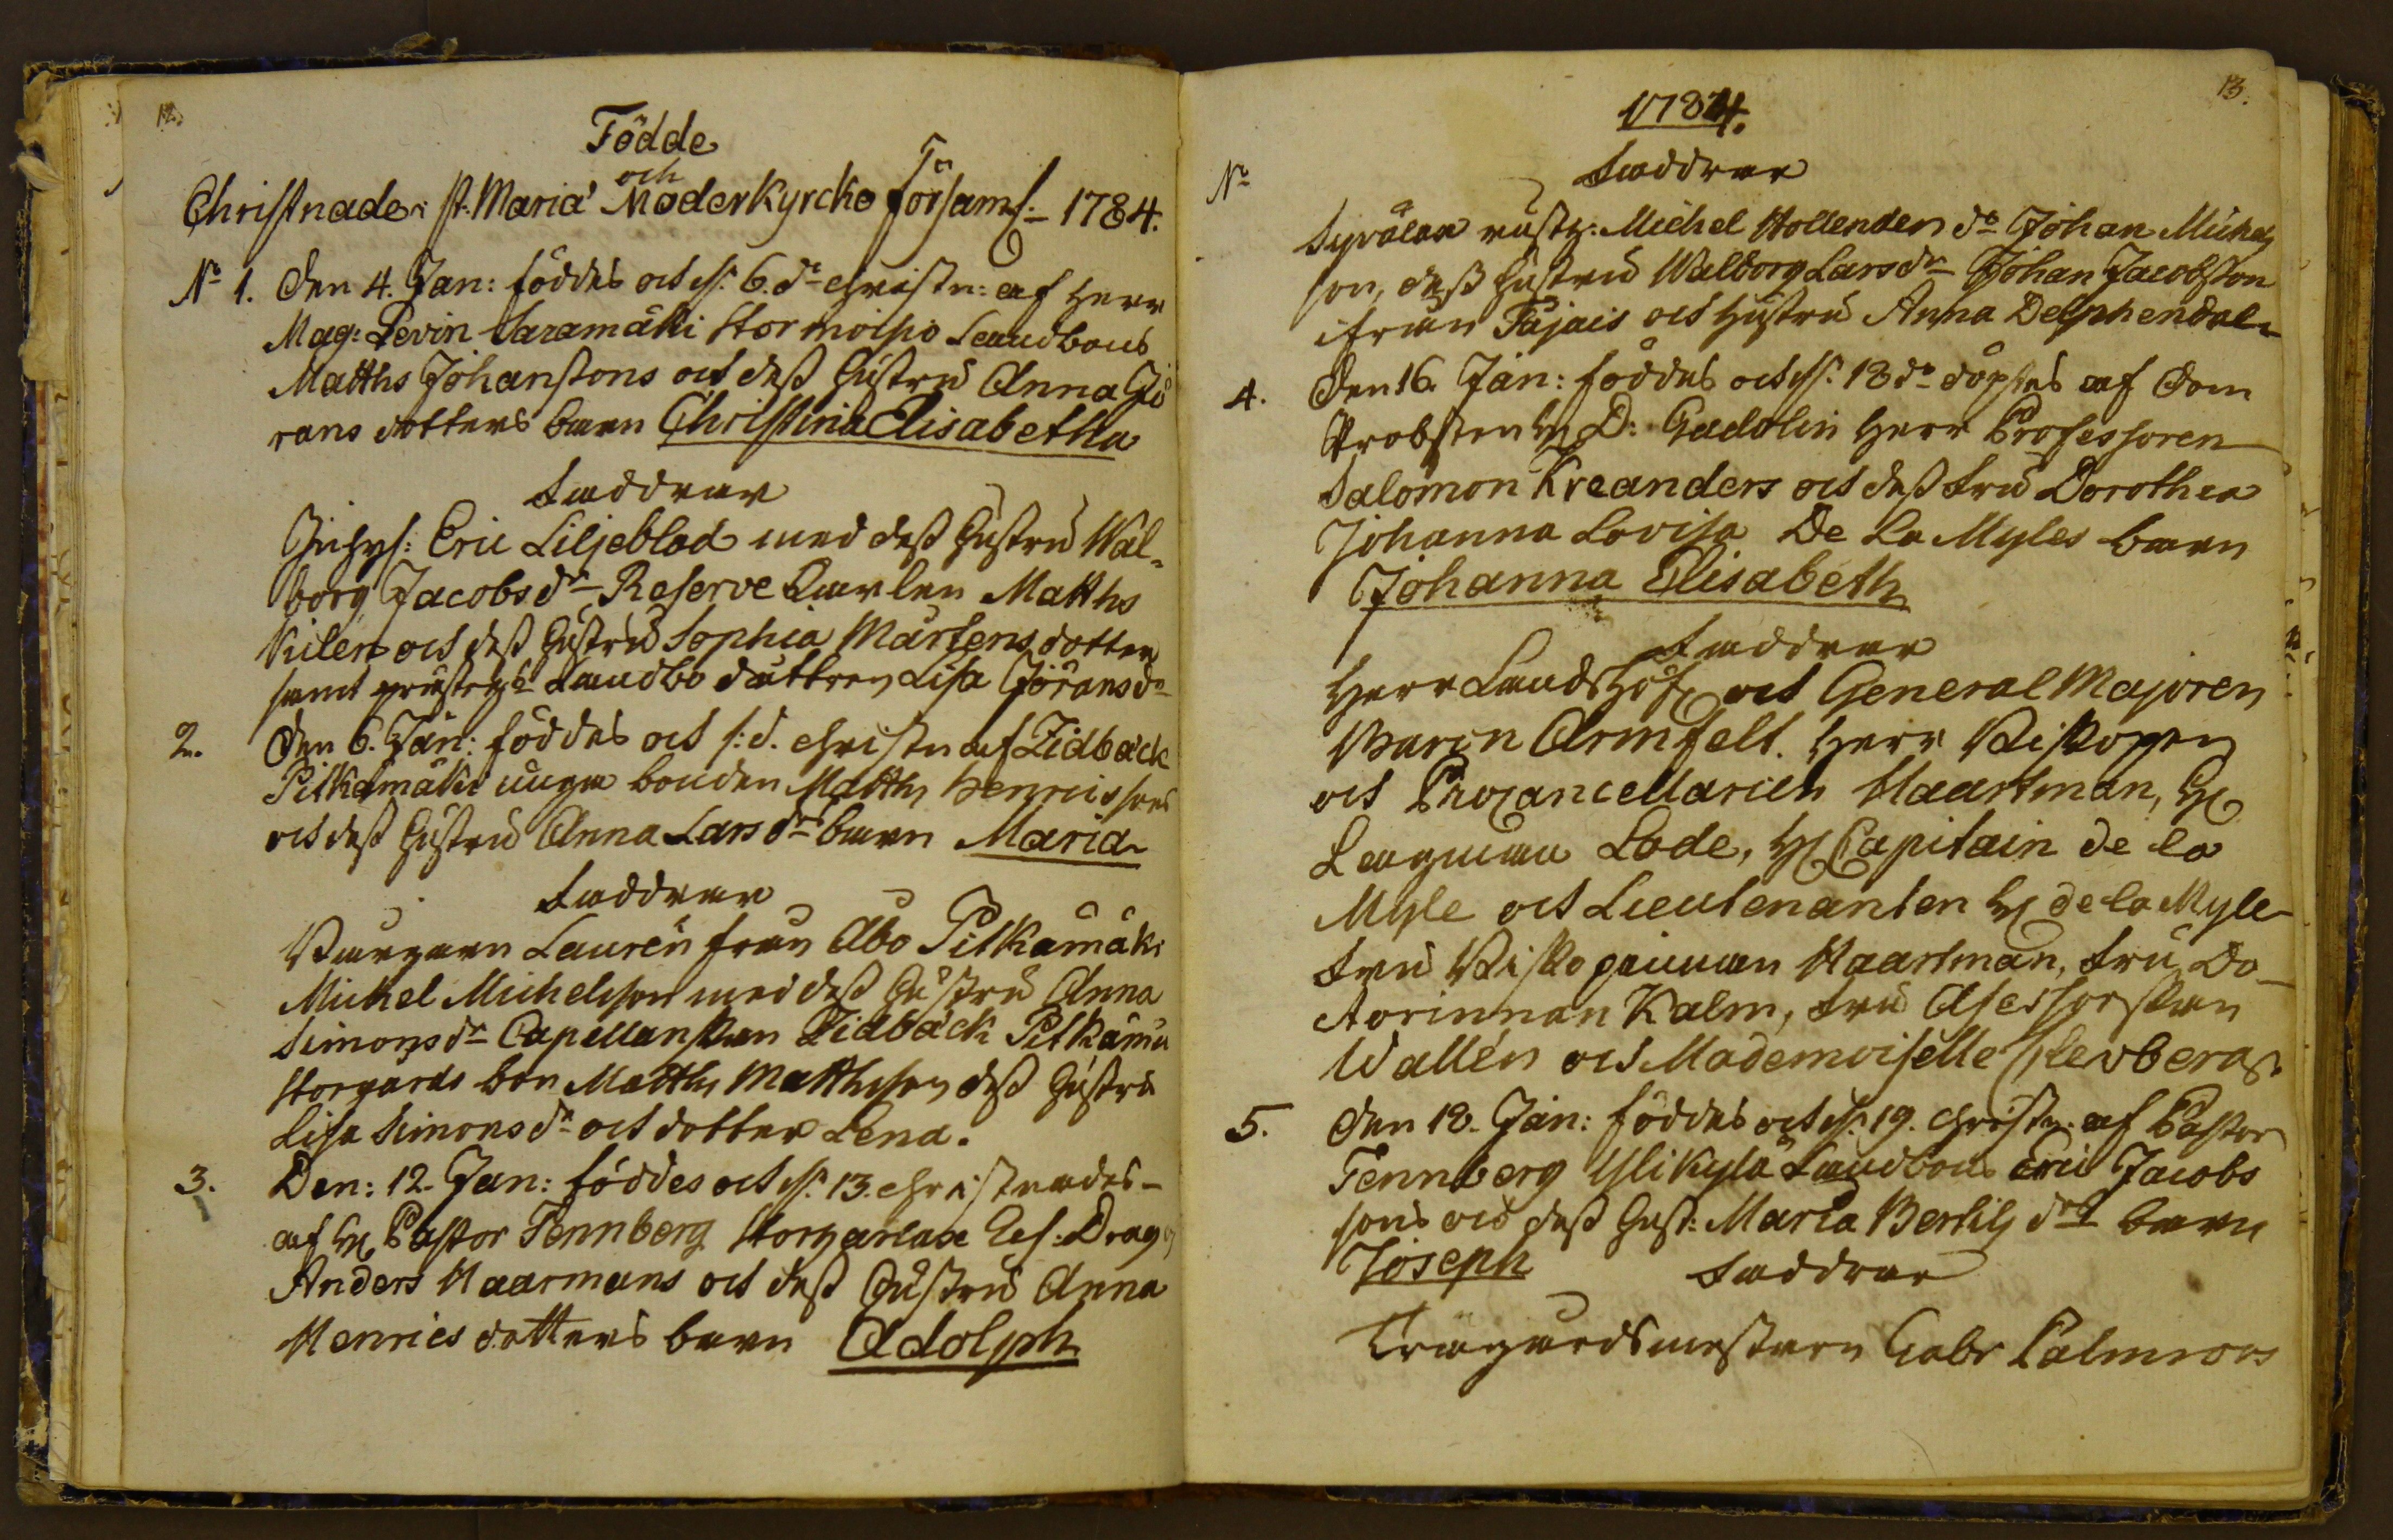 12.
Födde
och
Christnade i St. Mariæ Moderkyrcko Församl: 1784.
No 1. Den 4. Jan: föddes och 6. do christn: af Herr
Mag: Levin Saramäki Stormoisio Landbons
Matths Johanssons och dess hustru Anna Jö
rans dotters barn Christina Elisabetha
Faddrar
Eric Liljeblad med dess hustru Wal-
borg Jacobs dr Reserve Karlen Matths
Kilen och dess hustru Sophia Mårtens dotter
samt Landbo dattren Lisa Jörans dr
2. Den 6. Jan: föddes och s: d. christn af Zidbäck
Pitkämäki unga bonden Matths Henricssons
och dess hustru Anna Lars drs barn Maria
Faddrar
Borgaren Lauren från Åbo Pitkämäki
Michel Michelsson med dess hustru Anna
Simons dr Capellanskan Zidbäck Pitkämä
Storgårds bon Matths Matthsson dess hustru
Lisa Simons dr och dotter Lena.
3. Den: 12. Jan: föddes och 13. christnades
af H Pastor Tennberg Drag
Anders Haarmans och dess hustru Anna
Henrics dotters barn Adolph
13.
1784.
No
Faddrar
Michel Hollenden do Johan Michels
son, dess hustru Walborg Lars dr Johan Jacobsson
ifrån Pajais och hustru Anna Delphendal
4. Den 16. Jan: föddes och 18 do döptes af Dom
Probsten H D: Gadolin Herr Professoren
Salomon Kreanders och dess Fru Dorothea
Johanna Lovisa De La Myles barn
Johanna Elisabeth
Faddrar
Herr Landshöf och General Majoren
Baron Armfelt. Herr Biskopen
och Procancellarien Haartman, H
Lagman Lode, H Capitain de la
Myle och Lieutenanten H de la Myle
Fru Biskopinnan Haartman, Fru Do-
ctorinnan Kalm, Fru Assessorskan
Wallen och Mademoiselle
5. Den 18. Jan: föddes och 19. christn: af Pastor
Tennberg Ylikylä Landbons Eric Jacobs
sons och dess hust: Maria Bertils drs barn
Joseph Faddrar
Trägårdsmästaren Gabr Palmroos